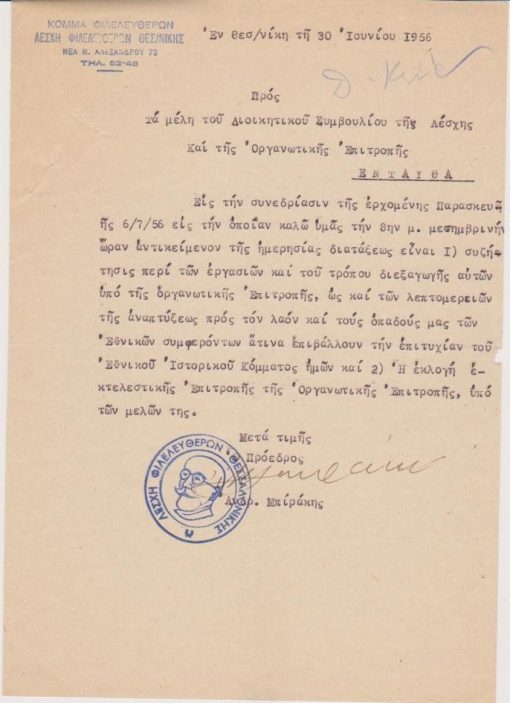 ΚΟΜΜΑ ΦΙΛΕΛΕΥΘΕΡΩΝ
ΛΕΣΧΗ ΦΙΛΕΛΕΥΘΕΡΩΝ ΘΕΣ/ΝΙΚΗΣ
ΝΕΑ Μ. ΑΛΕΞΑΝΔΡΟΥ 72
ΤΗΛ. 52-48
Ἐν Θεσ/νίκη τῆ 30 Ἰουνίου 1956
Πρός
Τά μέλη τοῦ Διοικητικοῦ Συμβουλίου τῆς Λέσχης
Καί τῆς Ὀργανωτικῆς Ἐπιτροπῆς
ΕΝΤΑΥΘΑ
Εἰς τήν συνεδρίασιν τῆς ἐρχομένης Παρασκευῆ
ῆς 6/7/56 εἰς τήν ὁποίαν καλῶ ὑμᾶς τήν 8ην μ. μεσημβρινήν
ὥραν ἀντικείμενον τῆς ἡμερησίας διατάξεως εἶναι Ι) συζή-
τησις περί τῶν ἐργασιῶν καί τοῦ τρόπου διεξαγωγῆς αὐτῶν
ὑπό τῆς ὀργανωτικῆς Ἐπιτροπῆς, ὡς καί τῶν λεπτομερειῶν
τῆς ἀναπτύξεως πρός τόν λαόν καί τούς ὀπαδούς μας τῶν
Ἐθνικῶν συμφερόντων ἅτινα ἐπιβάλλουν τήν ἐπιτυχίαν τοῦ
Ἐθνικοῦ Ἱστορικοῦ Κόμματος ἡμῶν καί 2) Ἡ ἐκλογή ἐ-
κτελεστικῆς Ἐπιτροπῆς τῆς Ὀργανωτικῆς Ἐπιτροπῆς, ὑπό
τῶν μελῶν της.
Μετά τιμῆς
Πρόεδρος
ΛΕΣΧΗ ΦΙΛΕΛΕΥΘΕΡΩΝ ΘΕΣΣΑΛΟΝΙΚΗΣ
Ἀνδρ. Μπιράκης